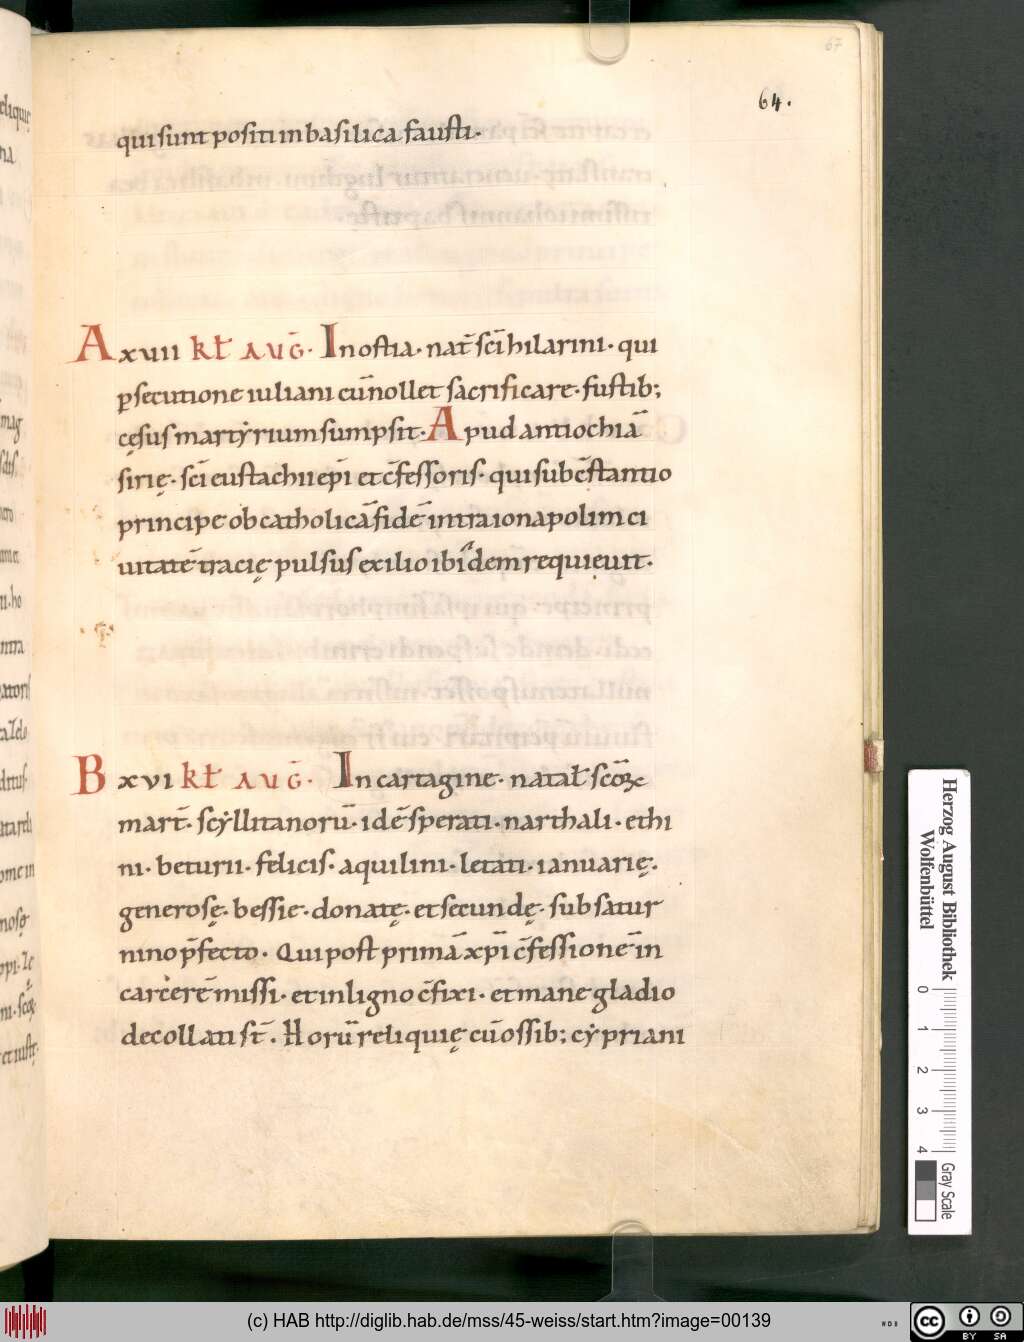 67
64.
qui sunt positi in basilica fausti.
A xvii kł aug̅. In ostia. nat̅ sc̅i hilarini. qui
ꝑsecutione iuliani cu̅ nollet sacrificare. fustib;
cęsus martẏrium sumpsit. Apud antiochia̅
sirię. sc̅i eustachii ep̅i et c̅fessoris. qui sub c̅stantio
principe ob catholica̅ fide̅ intra ionapolim ci
uitate̅ tracię pulsus exilio ibide̅m requieuit.
B xvi kł aug̅. In cartagine. natał sc̅oꝝ
mart̅. scẏllitanoru̅. ide̅ sperati. narthali. ethi
ni. beturii. felicis. aquilini. letati. ianuarię.
generosę. bessie. donatę. et secundę. sub satur
nino p̅fecto. Qui post prima̅ xp̅i c̅fessione̅ in
carcere̅ missi. et in ligno c̅fixi. et mane gladio
decollati st̅. Horu̅ reliquię cu̅ ossib; cẏpriani
Herzog August Bibliothek
Wolfenbüttel
0 1 2 3 4
Gray Scale
(c) HAB http://diglib.hab.de/mss/45-weiss/start.htm?image=00139
WDB
cc BY SA